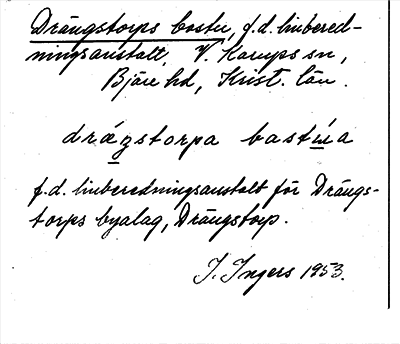 Drängstorps bastu, f.d. linbered-
ningsanstalt, V. Karups sn,
Bjäre hd, Krist. län.
drǽŋstorpa bastúa
f.d. linberedningsanstalt för Drängs-
torps byalag, Drängstorp.
I. Ingers 1953.